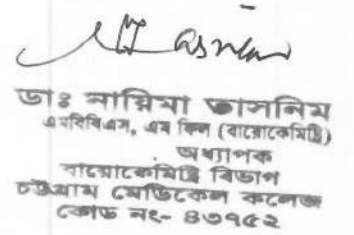 ডাঃ নাম্নিমা তাসনিম
এমবিবিএস, এম ফিল (বায়োকেমিষ্ট্রি)
অধ্যাপক
বায়োকেমিষ্ট্রি বিভাগ
চট্টগ্রাম মেডিকেল কলেজ
কোড নং- ৪৩৭৫২